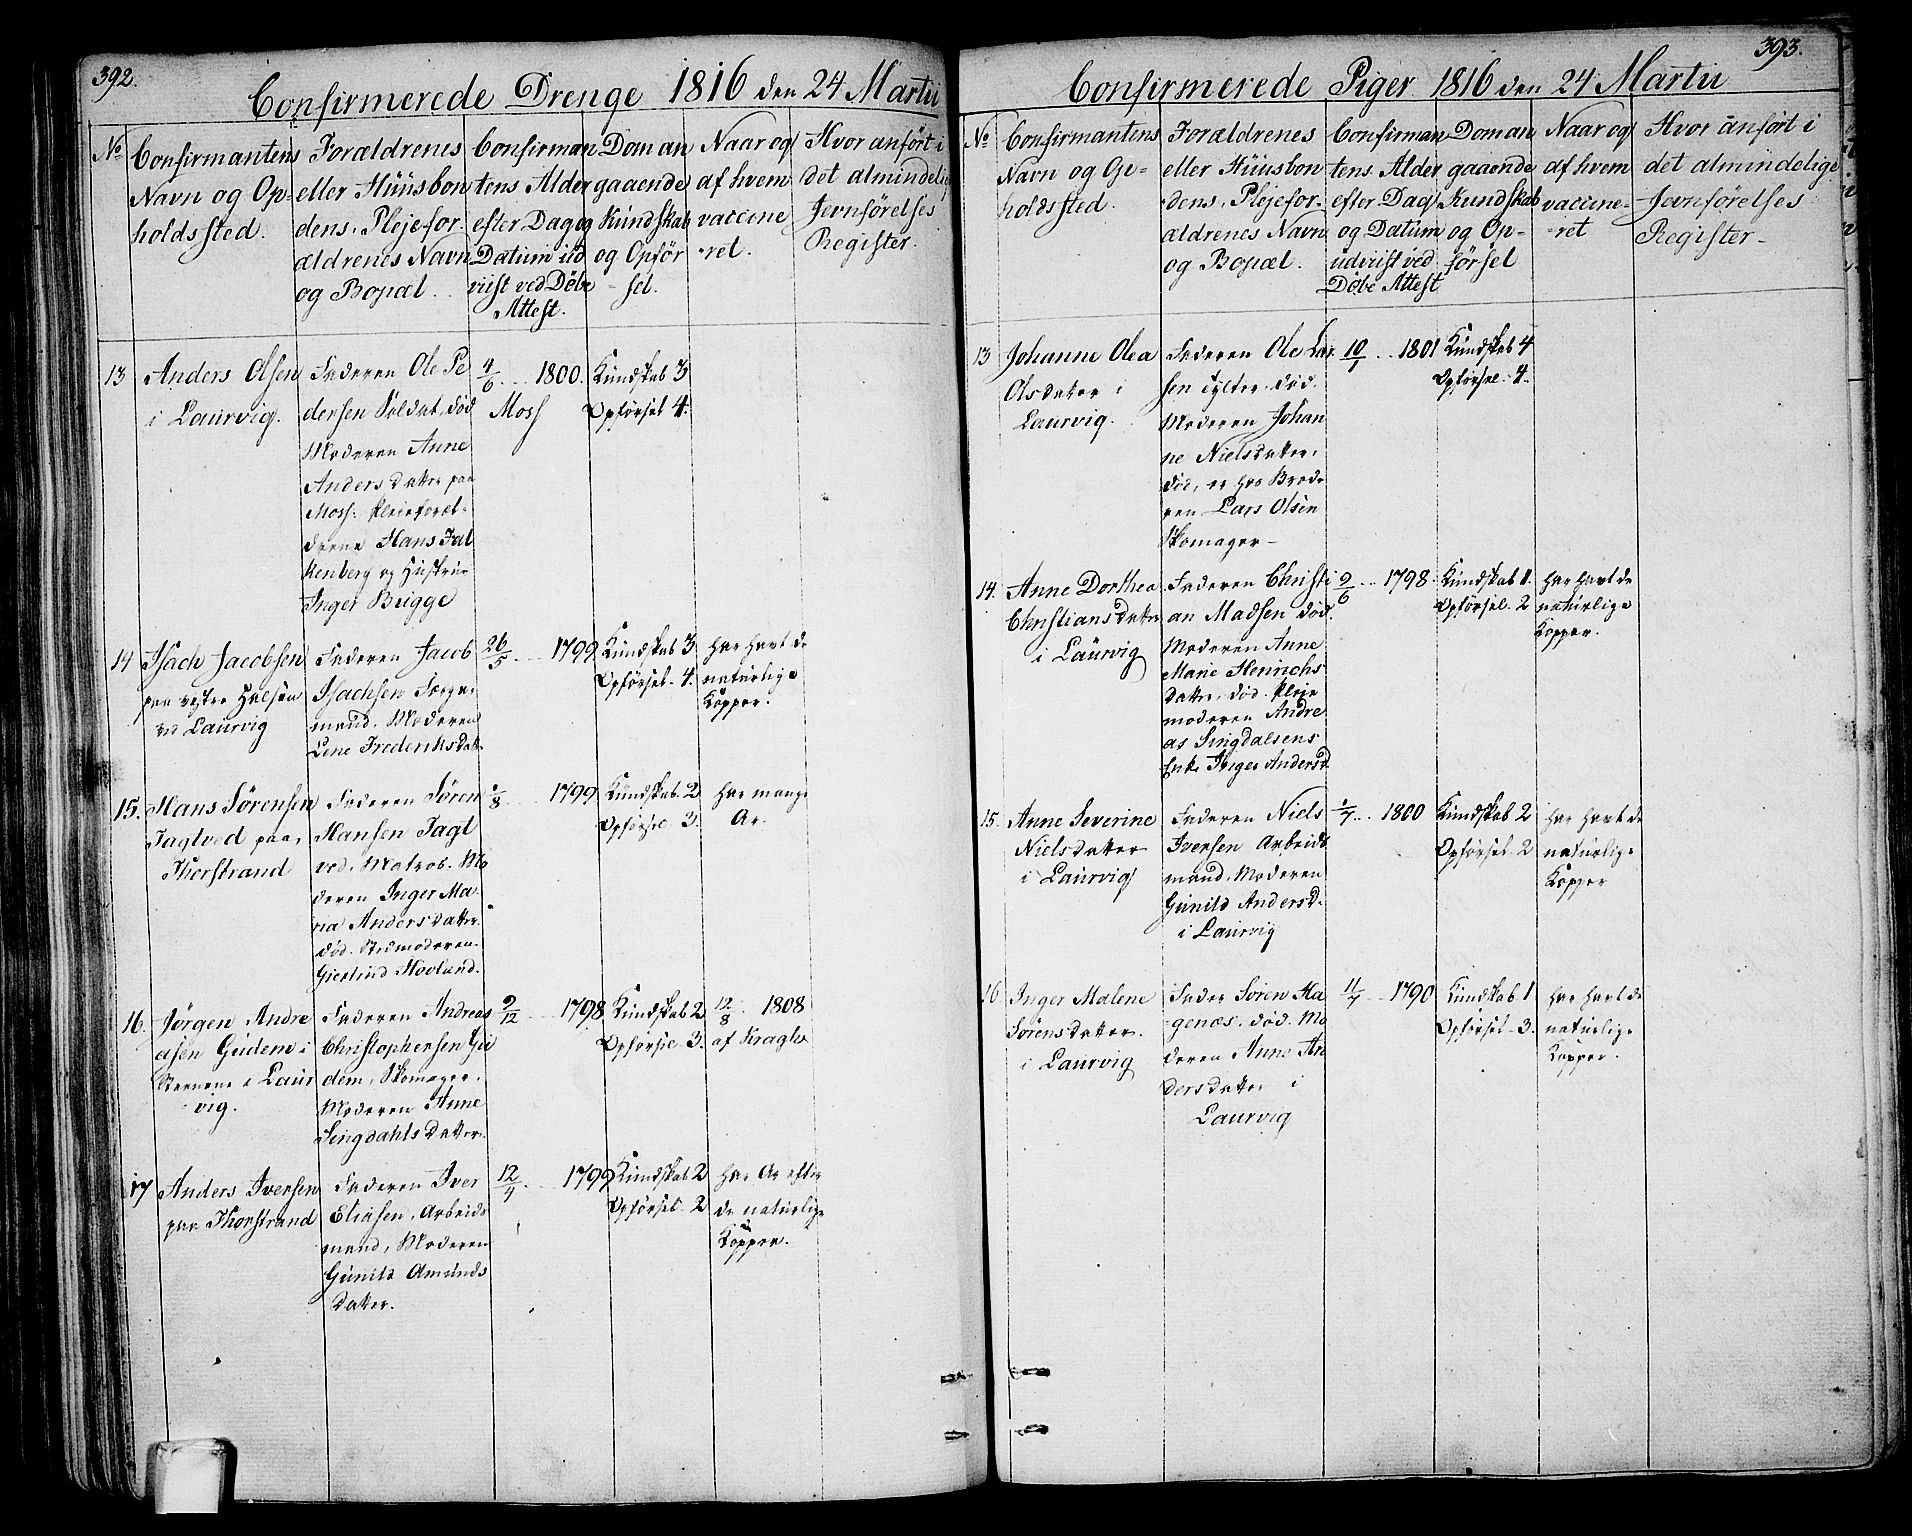 392.
Confirmerede Drenge 1816 den 24 Martii
No
Confirmantens
Navn og Op-
holdssted.
Forældrenes
eller Hüüsbon
dens, Plejefor-
ældrenes Navn
og Bopæl.
Confirman
tens Alder
efter Dag og
Datum ud
viist ved Døbe
Attest.
Dom an
gaaende
Kundskab
og Opför
-sel.
Naar og
af hvem
vaccine
-ret.
Hvor anført i
det almindelig
Jevnførelses
Register.
13
Anders Olsen
i Laurvig.
Faderen Ole Pe
dersen Soldat, död
Moderen Anne
Anders datter paa
Moss. Pleieforæl-
drene Hans Fal
kenberg og Hustrue
Inger Brigge
4/6 1800.
Moss
Kundskab 3
Opførsel 4.
14
Isach Jacobsen
paa vestre Halsen
ved Laurvig
Faderen Jacob
Isachsen
mand. Moderen
Line Frederiksdatt
26/5 1799
Kundskab 3
Opførsel 4.
har havt de
naturlige
Kopper.
15.
Hans Sörensen
Jagtved paa
Thorstrand
Faderen Sören
Hansen Jagt
ved, Matros. Mo
deren Inger Ma
ria Andersdatter
död. Stedmoderen
Gierlind Hovland.
/8 1799
Kundskab 2
Opførsel 3.
har mange
Ar.
16.
Jørgen Andre
asen Gudem i
i Laur
vig.
Faderen Andreas
Christophersen Gu
dem, Skomager,
Moderen Anne
Singdahls datter
9/12 1798
Kundskab 2
Opførsel 3.
12/8 1808
af Kragh
17
Anders Iversen
paa Thorstrand
Faderen Iver
Eliasen, Arbeids
mand, Moderen
Günild Amunds
datter.
12/4 1799
Kundskab 2
Opførsel 2
har Ar efter
de naturlige
Kopper.
393.
Confirmerede Piger 1816 den 24 Martii
No
Confirmantens
Navn og Op-
holdssted.
Forældrenes
eller Hüüsbon
dens, Plejefor-
ældrenes Navn
og Bopæl.
Confirman
tens Alder
efter Dag
og Datum
udviist ved
Døbe Attest
Dom an
gaaende
Kundskab
og Op-
førsel
Naar og
af hvem
vaccine-
-ret
Hvor anført i
det almindelige
Jevnførelses
Register-
13
Johanne Olea
Olsdatter i
Laurvig.
Faderen Ole Lar
sen död.
Moderen Johan
ne Nielsdatter,
död, er hos Brode
ren Lars Olsen
Skomager-
10/1 1801
Kundskab 4
Opførsel 4.
14.
Anne Dorthea
Christiansdatter
i Laurvig
Faderen Christi
an Madsen död.
Moderen Anne
Marie Henrichs
datter, död. Pleie
moderen Andre
as Singdalsens
Enke Inger Andersd
9/6 1798.
Kundskab 1.
Opførsel 2
har havt de
naturlige
Kopper.
15.
Anne Severine
Nielsdatter
i Laurvig
Faderen Niels
Iversen Arbeids
mand, Moderen
Günild Andersd.
i Laurvig
/7 1800
Kundskab 2
Opførsel 2
har havt de
naturlige
Kopper
16
Inger Malene
Sörensdatter
i Laurvig
Fader Sören Ha
genæs, död. Mo
deren Anne An
dersdatter i
Laurvig
11/7 1790
Kundskab 1
Opførsel 3.
har havt de
naturlige
Kopper.